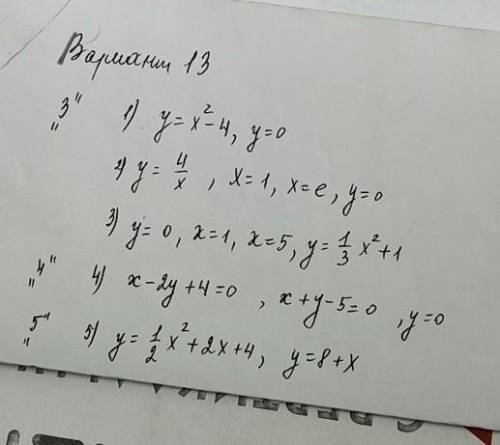 Вариант 13
„3" 1) y = x² - 4, y = 0
2) y = 4/x, x = 1, x = e, y = 0
3) y = 0, x = 1, x = 5, y = 1/3 x² + 1
„4" 4) x - 2y + 4 = 0, x + y - 5 = 0, y = 0
„5" 5) y = 1/2 x² + 2x + 4, y = 8 + x